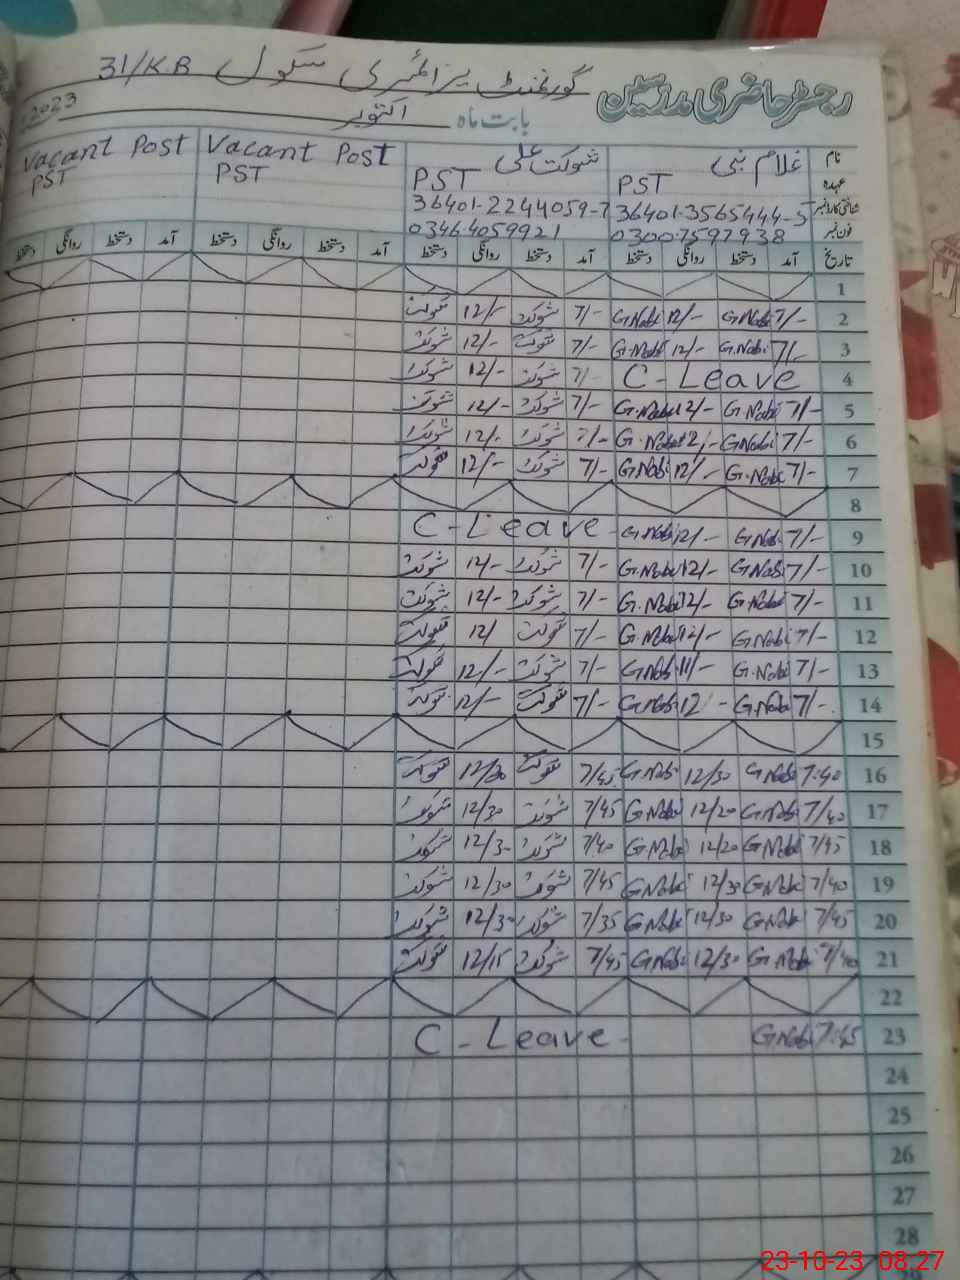 رجسٹر حاضری مدرسین گورنمنٹ پرائمری سکول 31/KB
بابت ماہ اکتوبر 2023
نام غلام نبی شوکت علی Vacant Post Vacant Post
عہدہ PST PST PST PST
شناختی کارڈ نمبر 36401-3565444-5 36401-2244059-7
فون نمبر 03007597938 03464059921
تاریخ آمد دستخط روانگی دستخط آمد دستخط روانگی دستخط آمد دستخط روانگی دستخط آمد دستخط روانگی دستخط
1
2 7/- G.Nabi 12/- G.Nabi 7/- شوکت 12/- شوکت
3 7/- G.Nabi 12/- G.Nabi 7/- شوکت 12/- شوکت
4 C - Leave 7/- شوکت 12/- شوکت
5 7/- G.Nabi 12/- G.Nabi 7/- شوکت 12/- شوکت
6 7/- G.Nabi 12/- G.Nabi 7/- شوکت 12/- شوکت
7 7/- G.Nabi 12/- G.Nabi 7/- شوکت 12/- شوکت
8
9 7/- G.Nabi 12/- G.Nabi C - Leave -
10 7/- G.Nabi 12/- G.Nabi 7/- شوکت 12/- شوکت
11 7/- G.Nabi 12/- G.Nabi 7/- شوکت 12/- شوکت
12 7/- G.Nabi 12/- G.Nabi 7/- شوکت 12/ شوکت
13 7/- G.Nabi 11/- G.Nabi 7/- شوکت 12/- شوکت
14 7/- G.Nabi 12/- G.Nabi 7/- شوکت 12/- شوکت
15
16 7:40 G.Nabi 12/30 G.Nabi 7/45 شوکت 12/30 شوکت
17 7/40 G.Nabi 12/20 G.Nabi 7/45 شوکت 12/30 شوکت
18 7/45 G.Nabi 12/20 G.Nabi 7/40 شوکت 12/30 شوکت
19 7/40 G.Nabi 12/30 G.Nabi 7/45 شوکت 12/30 شوکت
20 7/45 G.Nabi 12/30 G.Nabi 7/35 شوکت 12/30 شوکت
21 7/40 G.Nabi 12/30 G.Nabi 7/45 شوکت 12/15 شوکت
22
23 7:45 G.Nabi C - Leave -
24
25
26
27
28
23-10-23 08:27